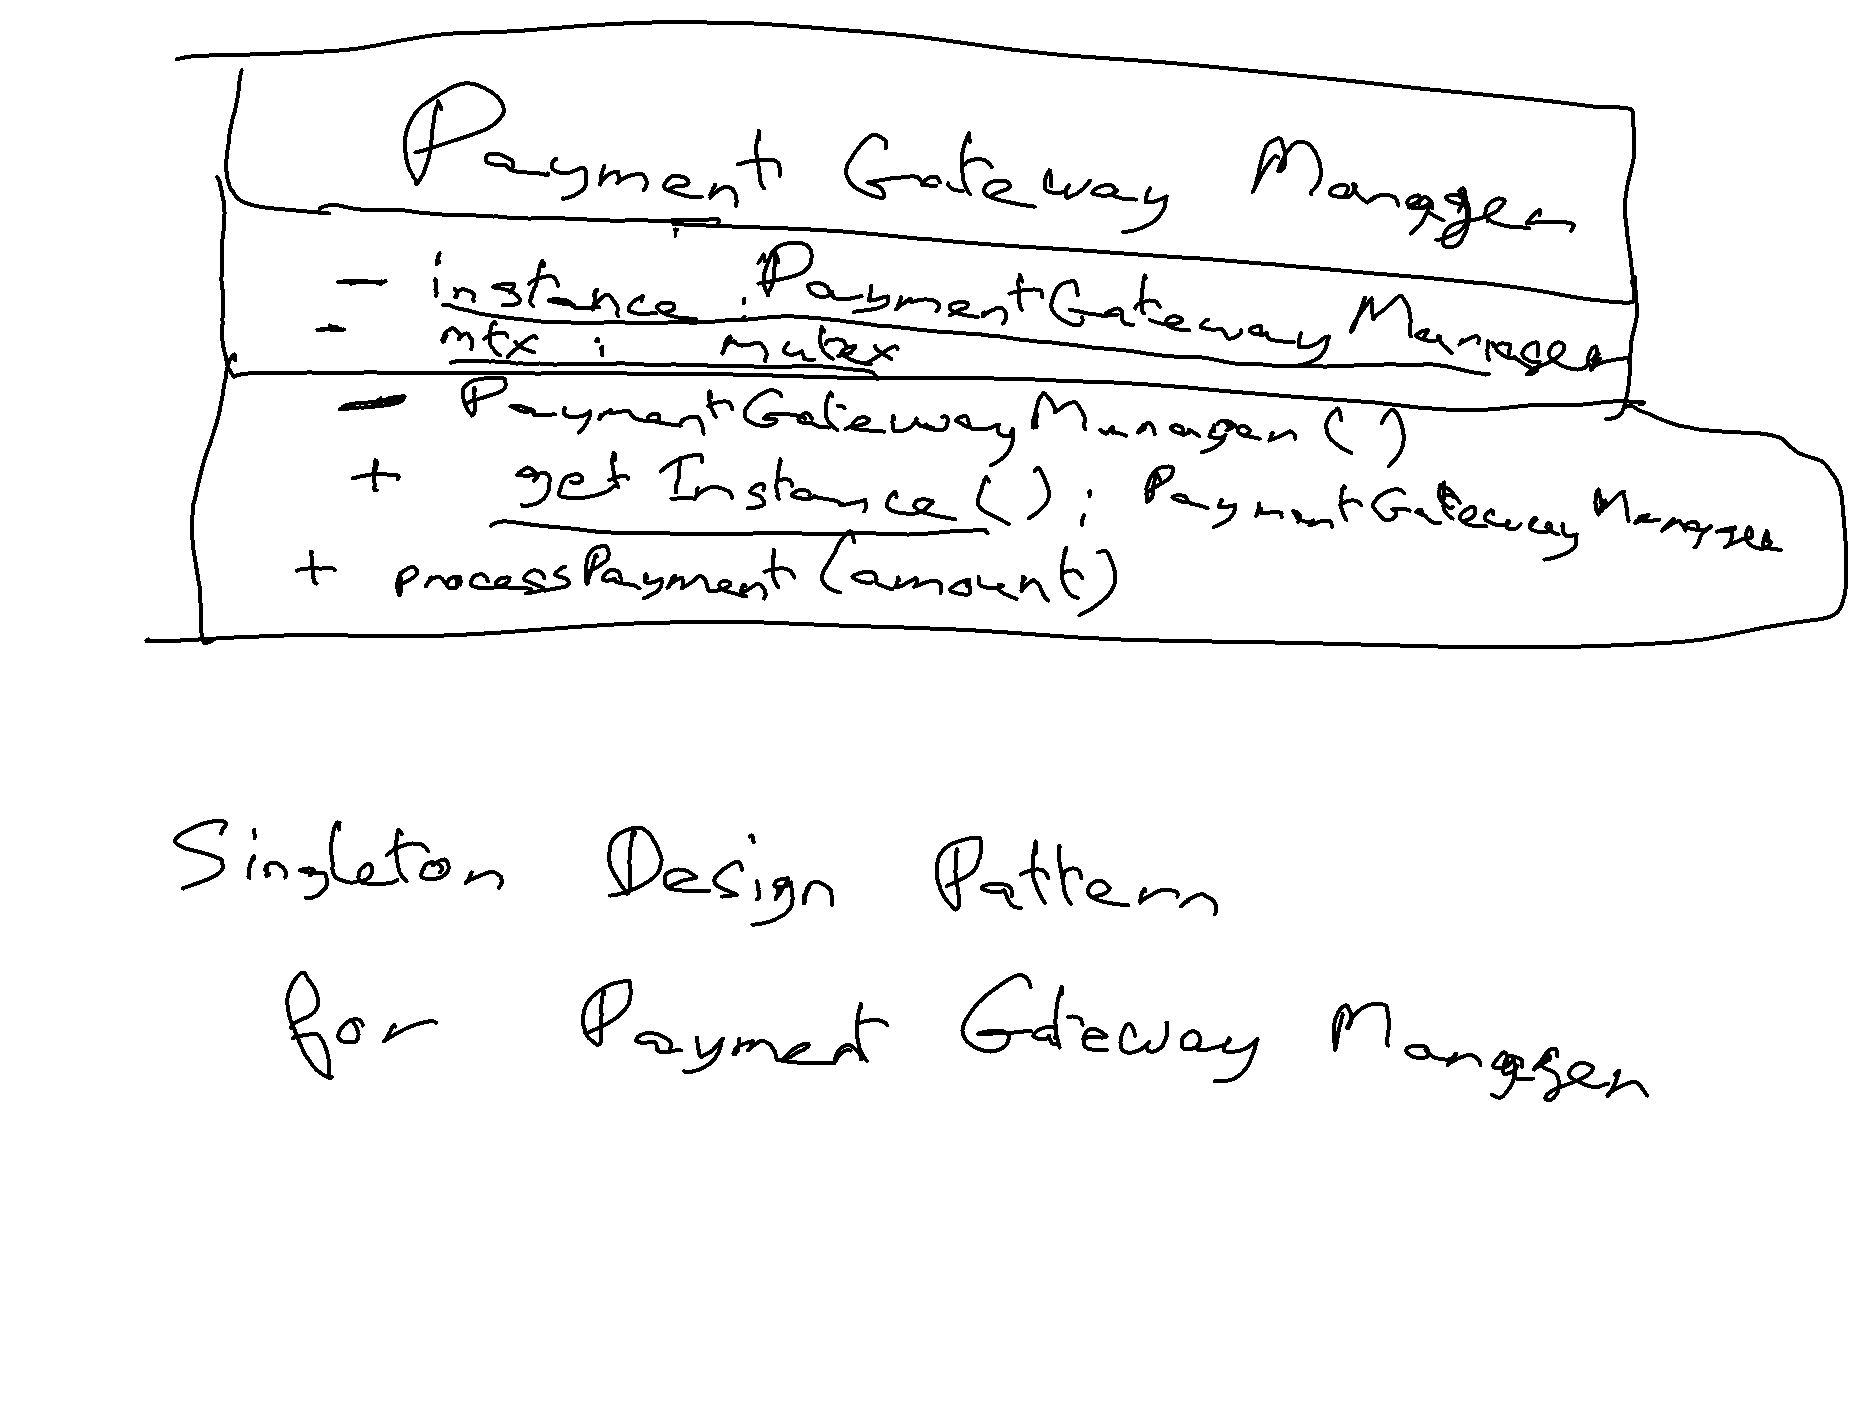 Payment Gateway Manager
- instance : PaymentGateway Manager
- mtx : mutex
- PaymentGatewayManager()
+ getInstance() : PaymentGateway Manager
+ processPayment(amount)
Singleton Design Pattern
for Payment Gateway Manager